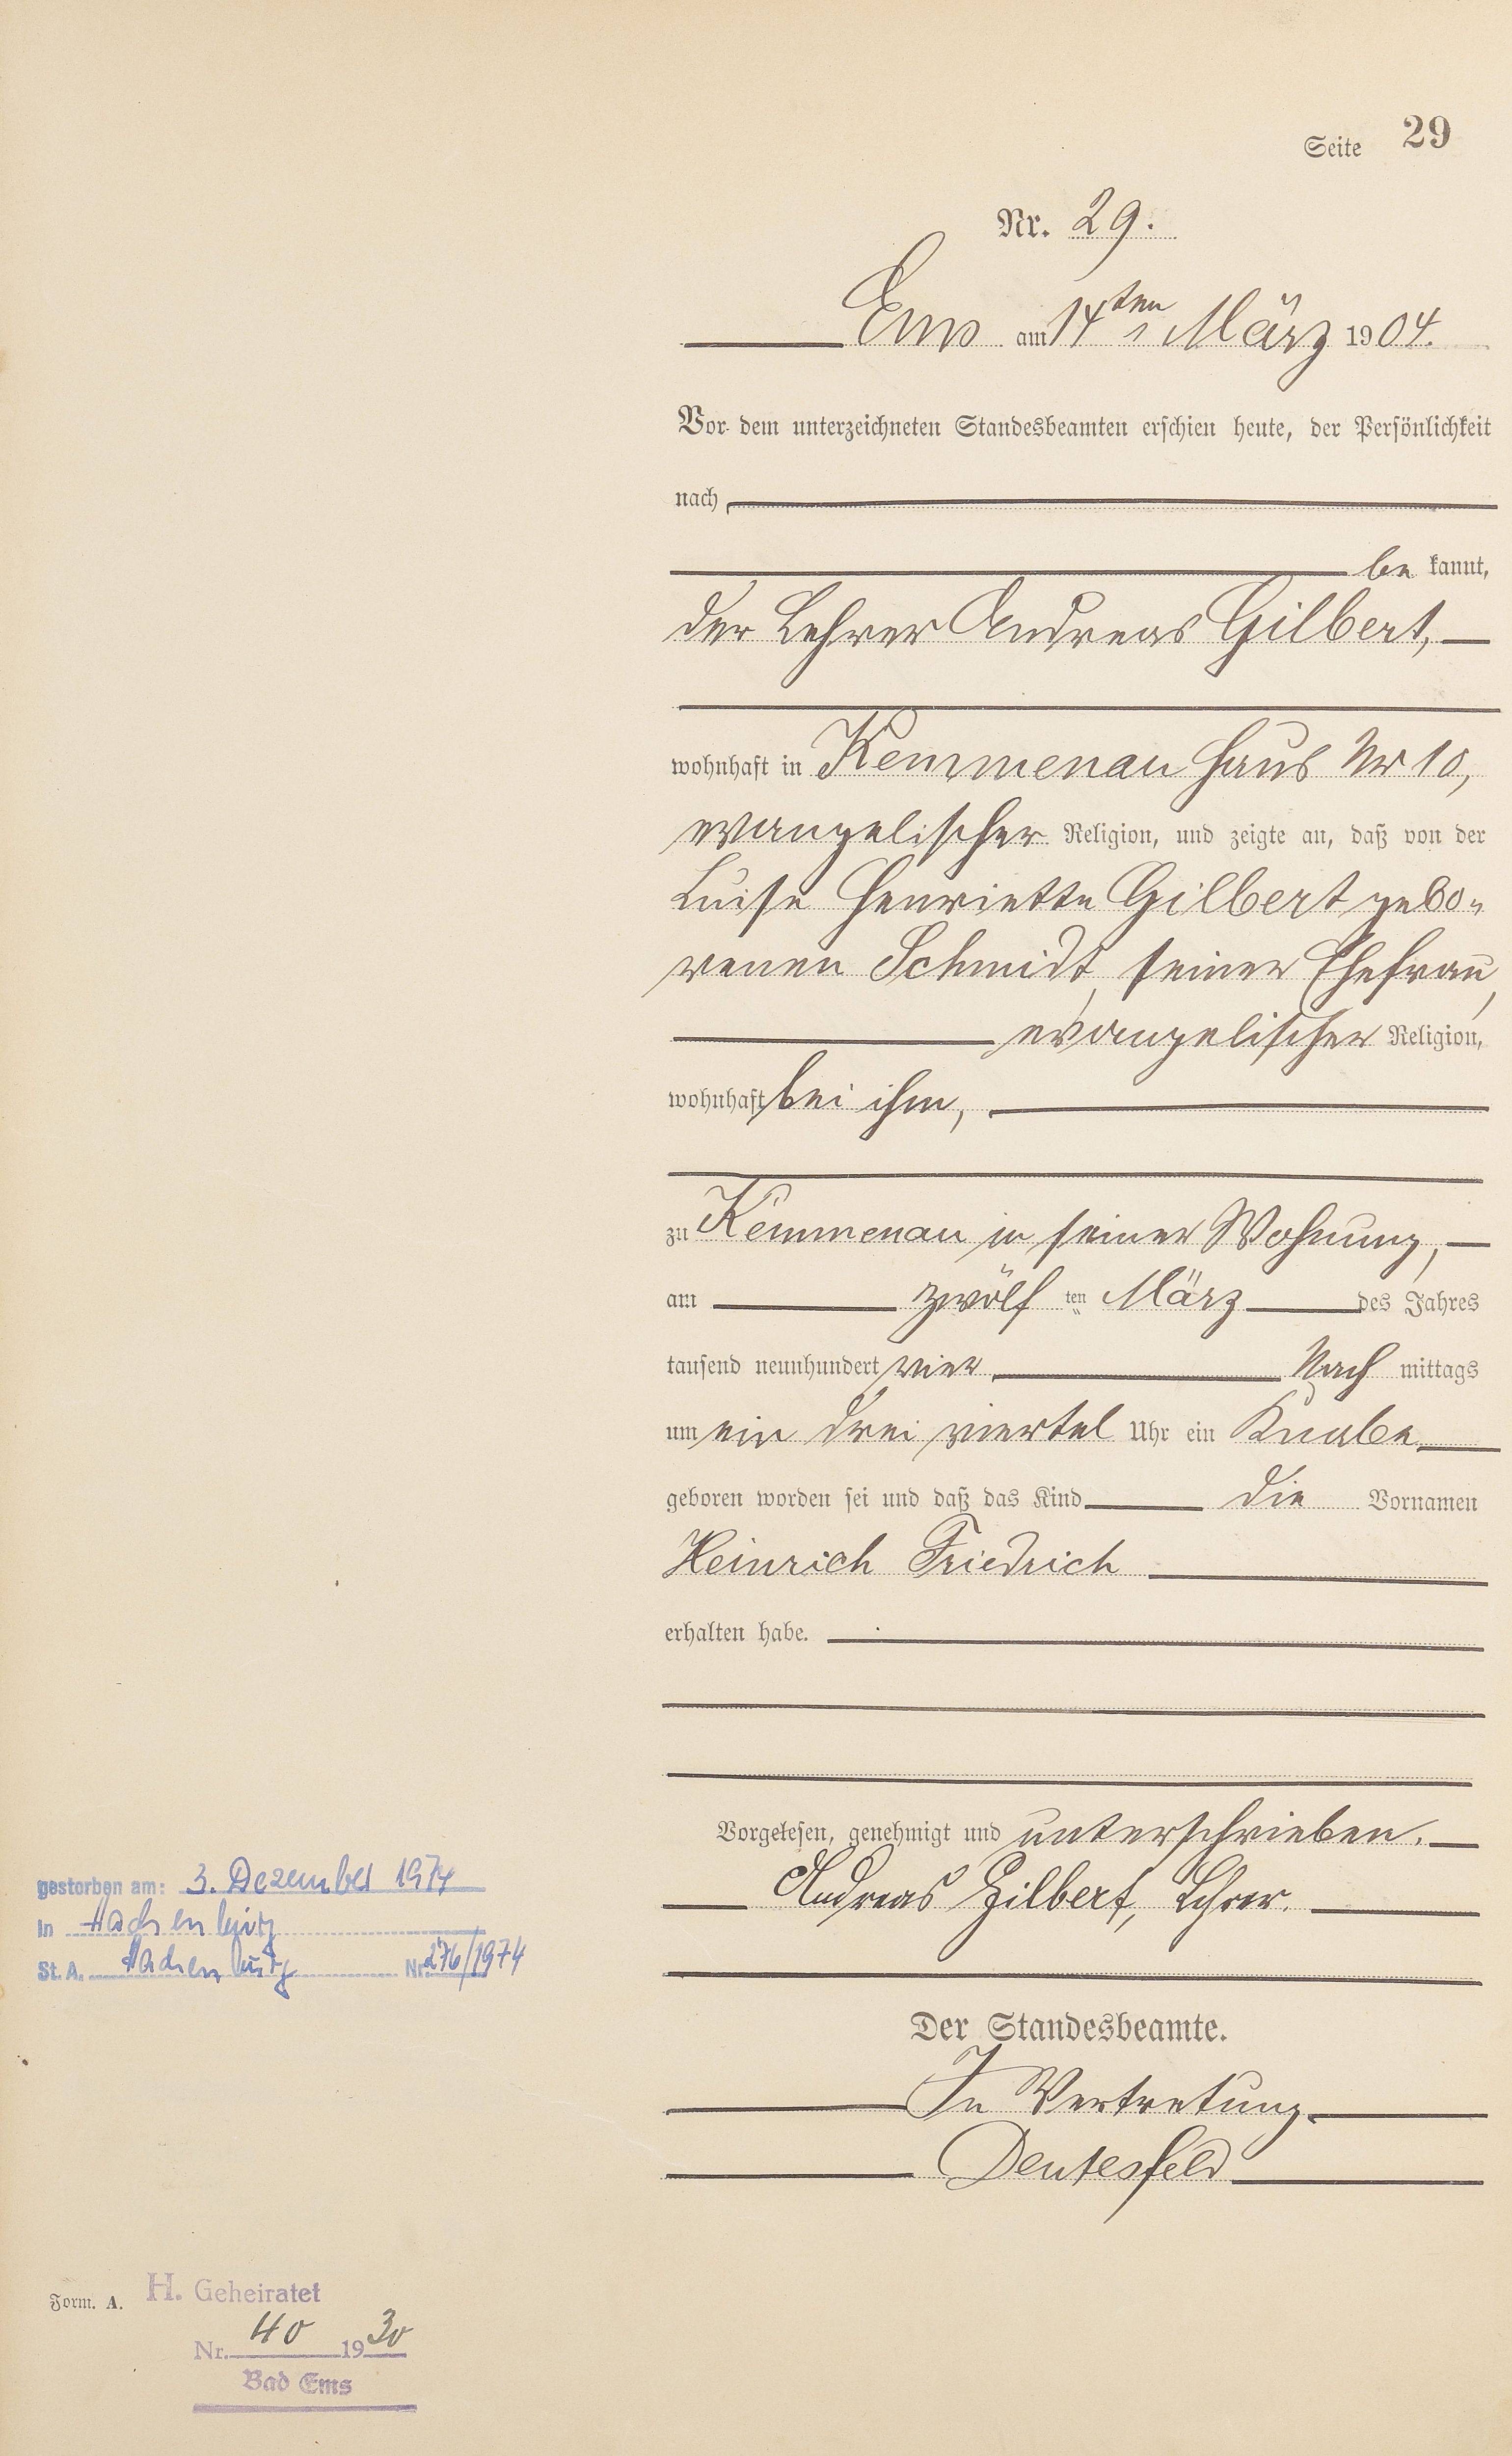 Seite 29
Nr. 29.
Ems am 14ten März 1904.
Vor dem unterzeichneten Standesbeamten erschien heute, der Persönlichkeit
nach
be kannt,
der Lehrer Andreas Gilbert,
wohnhaft in Kemmenau Haus Nr 10,
evangelischer Religion, und zeigte an, daß von der
Luise Henriette Gilbert gebo-
renen Schmidt, seiner Ehefrau,
evangelischer Religion,
wohnhaft bei ihm,
zu Kemmenau in seiner Wohnung,
am zwölf ten März des Jahres
tausend neunhundert vier Nach mittags
um ein drei viertel Uhr ein Knabe
geboren worden sei und daß das Kind die Vornamen
Heinrich Friedrich
erhalten habe.
Vorgelesen, genehmigt und unterschrieben.
Andreas Gilbert, Lehrer.
Der Standesbeamte.
In Vertretung.
Deutesfeld
gestorben am: 3. Dezember 1974
in Hachenburg
St. A. Hachenburg Nr. 276/1974
Form. A.
H. Geheiratet
Nr. 40 1930
Bad Ems